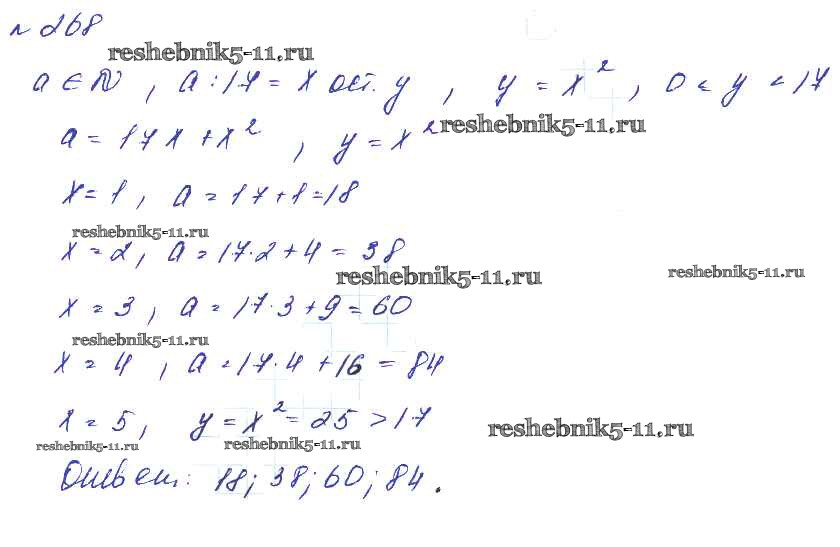 № 268
reshebnik5-11.ru
a ∈ N, a : 17 = x ост. y, y = x², 0 < y < 17
a = 17x + x², y = x²
reshebnik5-11.ru
x = 1, a = 17 + 1 = 18
reshebnik5-11.ru
x = 2, a = 17·2 + 4 = 38
reshebnik5-11.ru reshebnik5-11.ru
x = 3, a = 17·3 + 9 = 60
reshebnik5-11.ru
x = 4, a = 17·4 + 16 = 84
x = 5, y = x² = 25 > 17
reshebnik5-11.ru reshebnik5-11.ru reshebnik5-11.ru
Ответ: 18; 38; 60; 84.